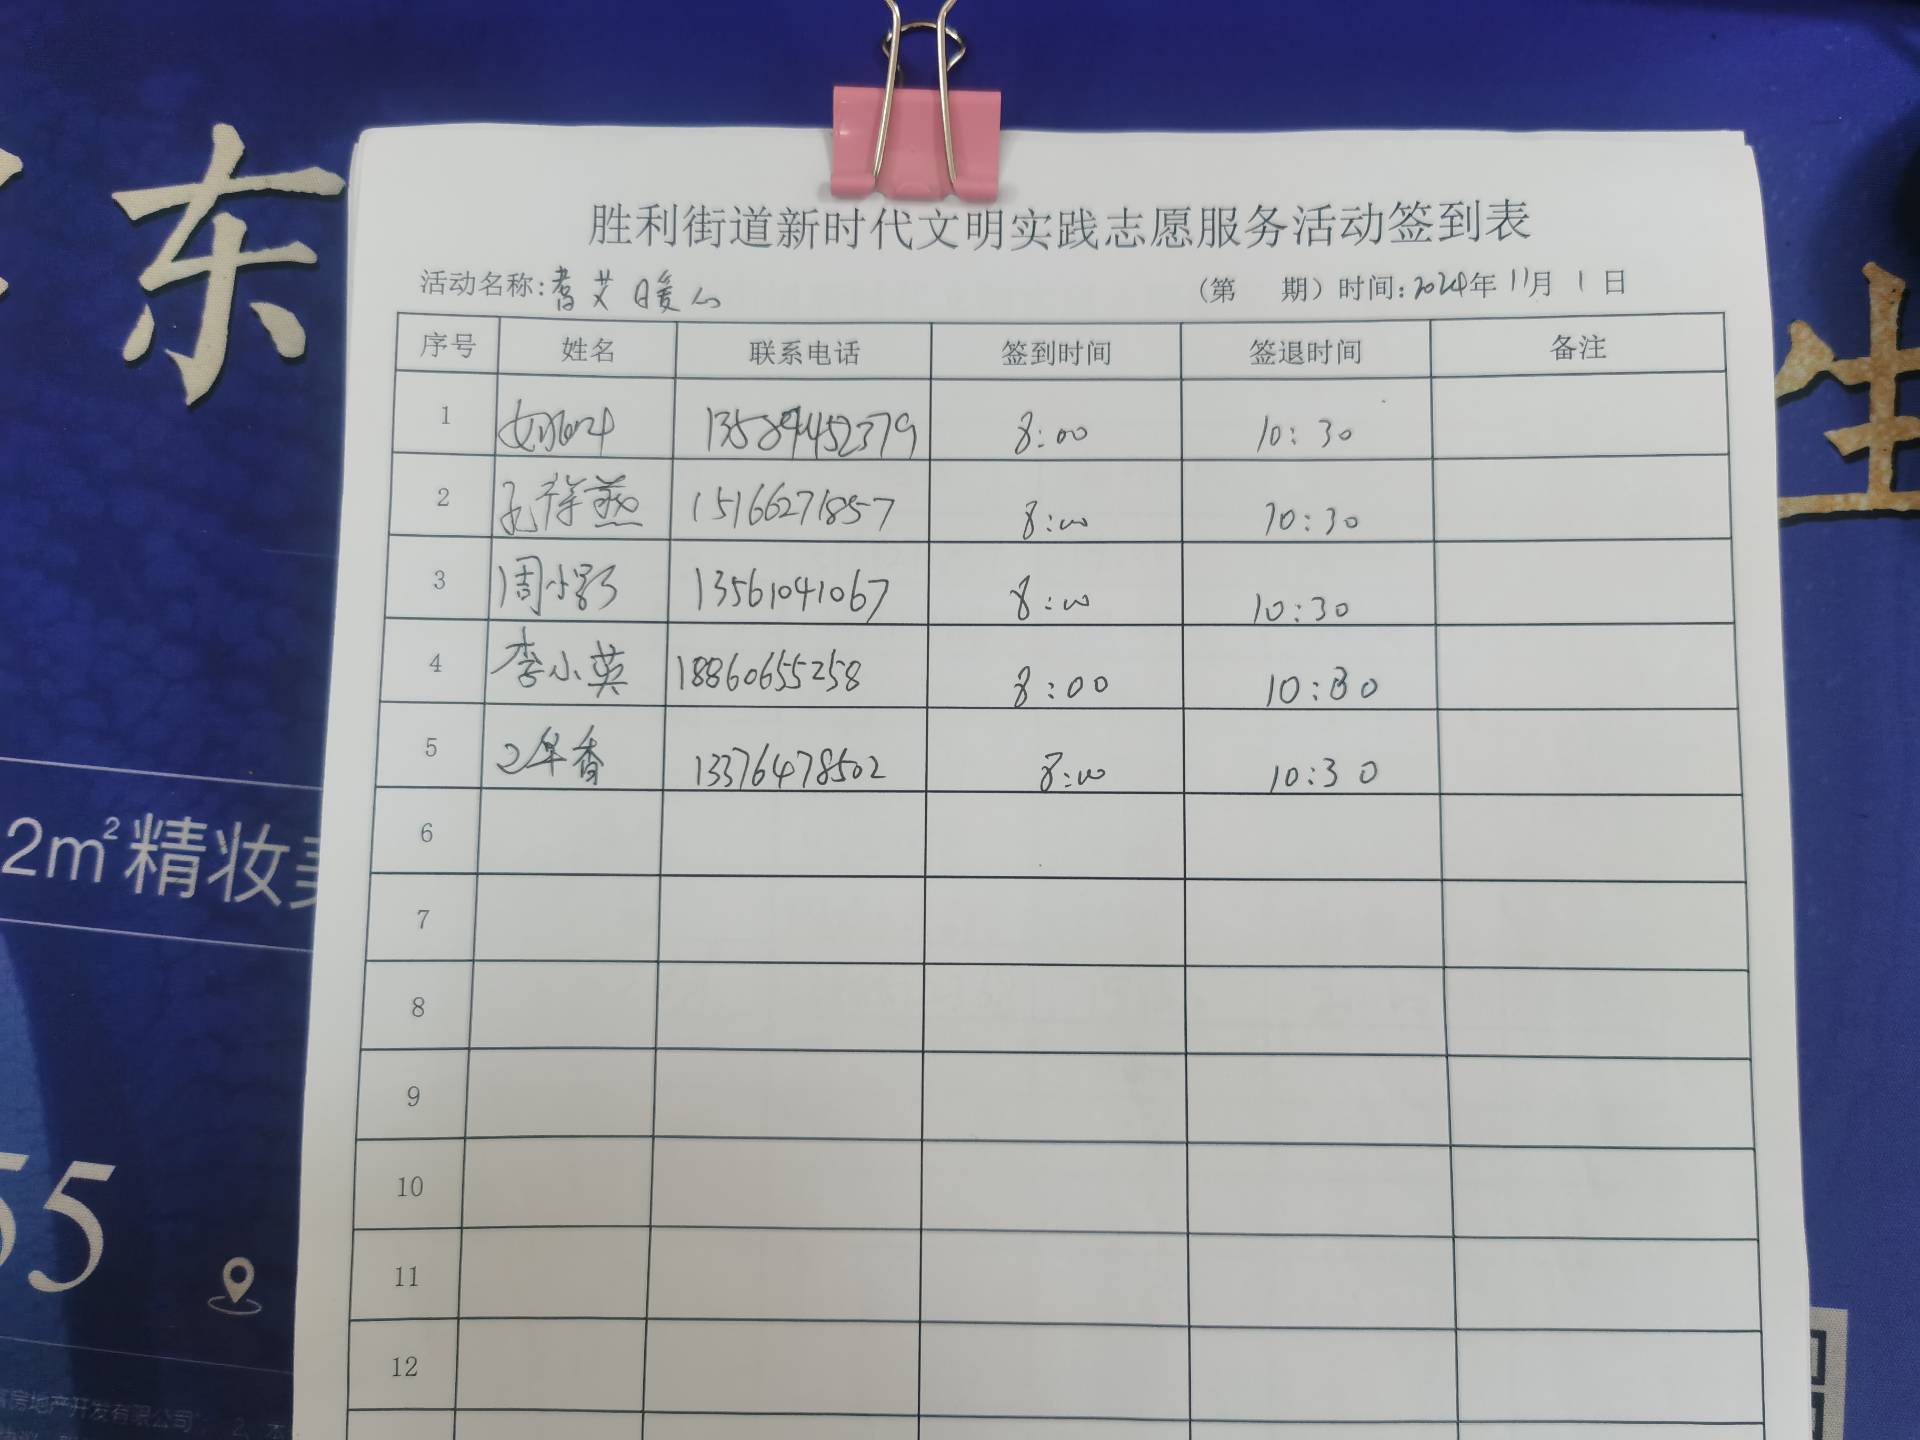 东
生
2m²精妆
55
房地产开发有限公司
胜利街道新时代文明实践志愿服务活动签到表
活动名称:耆艾暖心 （第 期）时间:2024年11月1日
序号 姓名 联系电话 签到时间 签退时间 备注
1 13589452379 8:00 10:30
2 孔祥燕 15166271857 8:00 10:30
3 周小影 13561041067 8:00 10:30
4 李小英 18860655258 8:00 10:30
5 香 13376478502 8:00 10:30
6
7
8
9
10
11
12